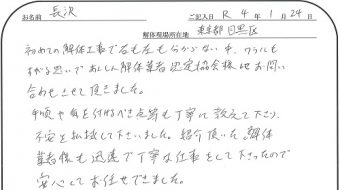 お名前 長沢 ご記入日 R 4年 1月 24日
解体現場所在地 東京都目黒区
初めての解体工事で右も左も分からない中、ワラにも
すがる思いであんしん解体業者認定協会様にお問い
合わせさせて頂きました。
手順や気を付けるべき点等も丁寧に教えて下さり、
不安を払拭して下さいました。紹介頂いた、解体
業者様も迅速で丁寧な仕事をして下さったので
安心してお任せできました。